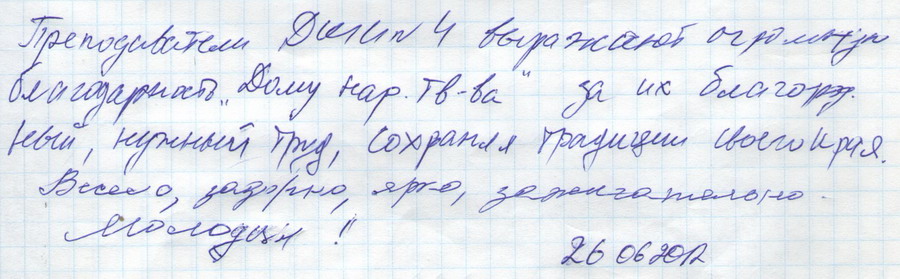 Преподаватели ДШИ №4 выражают огромную
благодарность „Дому нар. тв-ва" за их благород-
ный, нужный труд, сохраняя традиции своего края.
Весело, задорно, ярко, зажигательно.
Молодцы!!
26 06 2012